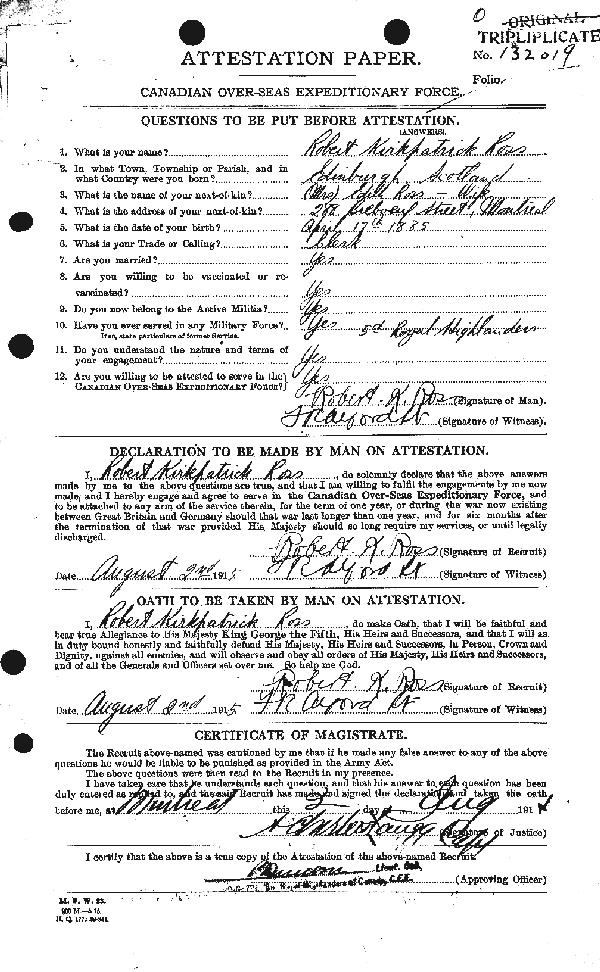 ORIGINAL
TRIPLIPLICATE
No. 132019
Folio.
ATTESTATION PAPER.
CANADIAN OVER-SEAS EXPEDITIONARY FORCE.
QUESTIONS TO BE PUT BEFORE ATTESTATION.
(ANSWERS)
1. What is your name? Robert Kirkpatrick Ross
2. In what Town, Township or Parish, and in
what Country were you born? Edinburgh Scotland
3. What is the name of your next-of-kin? (Mrs) Edith Ross - Wife
4. What is the address of your next-of-kin? Street, Montreal
5. What is the date of your birth? April 17th 1885
6. What is your Trade or Calling? Clerk
7. Are you married? Yes
8. Are you willing to be vaccinated or re-
vaccinated? Yes
9. Do you now belong to the Active Militia? Yes
10. Have you ever served in any Military Force? Yes 5th Royal Highlanders
If so, state particulars of former Service.
11. Do you understand the nature and terms of
your engagement? Yes
12. Are you willing to be attested to serve in the
CANADIAN OVER-SEAS EXPEDITIONARY FORCE? Yes
Robert K. Ross (Signature of Man).
(Signature of Witness).
DECLARATION TO BE MADE BY MAN ON ATTESTATION.
I, Robert Kirkpatrick Ross, do solemnly declare that the above answers
made by me to the above questions are true, and that I am willing to fulfil the engagements by me now
made, and I hereby engage and agree to serve in the Canadian Over-Seas Expeditionary Force, and
to be attached to any arm of the service therein, for the term of one year, or during the war now existing
between Great Britain and Germany should that war last longer than one year, and for six months after
the termination of that war provided His Majesty should so long require my services, or until legally
discharged.
Robert K. Ross (Signature of Recruit)
Date August 2nd 1915 (Signature of Witness)
OATH TO BE TAKEN BY MAN ON ATTESTATION.
I, Robert Kirkpatrick Ross, do make Oath, that I will be faithful and
bear true Allegiance to His Majesty King George the Fifth, His Heirs and Successors, and that I will as
in duty bound honestly and faithfully defend His Majesty, His Heirs and Successors, in Person, Crown and
Dignity, against all enemies, and will observe and obey all orders of His Majesty, His Heirs and Successors,
and of all the Generals and Officers set over me. So help me God.
Robert K. Ross (Signature of Recruit)
Date August 2nd 1915 (Signature of Witness)
CERTIFICATE OF MAGISTRATE.
The Recruit above-named was cautioned by me that if he made any false answer to any of the above
questions he would be liable to be punished as provided in the Army Act.
The above questions were then read to the Recruit in my presence.
I have taken care that he understands each question, and that his answer to each question has been
duly entered as replied to, and the said Recruit has made and signed the declaration and taken the oath
before me, at Montreal this 2 day of Aug 191
(Signature of Justice)
I certify that the above is a true copy of the Attestation of the above-named Recruit.
Lieut. Col.
Royal Highlanders of Canada, C.E.F. (Approving Officer)
M. F. W. 23.